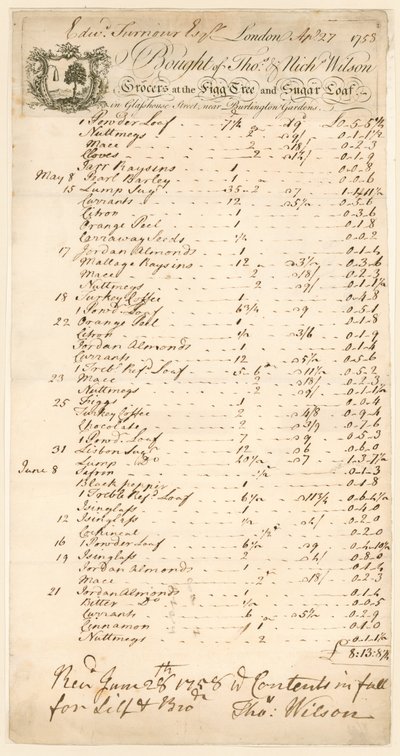 Edwd. Turnour Esqr. London Apl. 27 1758
Bought of Thos. & Nichs. Wilson
Grocers at the Figg Tree and Sugar Loaf
in Glasshouse Street, near Burlington Gardens.
1 Powder Loaf 7½ a 9d. £0-5-5¾
Nuttmegs 2 a 9/ 0-1-1½
Mace 2 a 18/ 0-2-3
Cloves 2 0-1-9
Jarr Raysins 1 0-0-8
May 8 Pearl Barley 1 0-0-6
15 Lump Sugr. 35-2 a 7
Currants 12 a 5½ 0-5-6
Citron 1 0-3-6
Orange Peel 1 0-1-8
Carraway Seeds ¼ 0-0-2
17 Jordan Almonds 1 0-1-4
Mallage Raysins 12 a 3½ 0-3-6
Mace 2 a 18/ 0-2-3
Nuttmegs 2 a 9/ 0-1-1½
18 Turkey Coffee 1 0-4-8
1 Powdr. Loaf 6¾ a 9 0-5-1
22 Orange Peel 1 0-1-8
Citron ½ a 3/6 0-1-9
Jordan Almonds 1 0-1-4
Currants 12 a 5½ 0-5-6
1 Treb. Refd. Loaf 5-6 a 11½ 0-5-2
23 Mace 2 a 18/ 0-2-3
Nuttmegs 2 a 9/ 0-1-1½
25 Figgs 1 0-0-4
Turkey Coffee 2 a 4/8 0-9-4
Chocolate 2 a 3/9 0-7-6
1 Powdr. Loaf 7 a 9 0-5-3
31 Lisbon Sugr. 12 a 6 0-6-0
Lump Do. a 7
June 8 Safron 0-1-3
Black pepper 1 0-1-8
1 Treble Refd. Loaf 6½ a 11¾
Isinglass 0-4-0
12 Isinglass ¼ 0-2-0
Cochineal 0-2-0
16 1 Powder Loaf 6½ a 9 0-4-10½
19 Isinglass 0-8-0
Jordan Almonds 1 0-1-4
Mace 2 a 18/ 0-2-3
21 Jordan Almonds 1 0-1-4
Bitter Do. ¼ 0-0-5
Currants 6 a 5½ 0-2-9
Cinnamon 1 0-1-0
Nuttmegs 2 0-1-1½
£8:13:8¾
Recd. June 28th 1758 ye Contents in full
for Self & Bror. Thos. Wilson